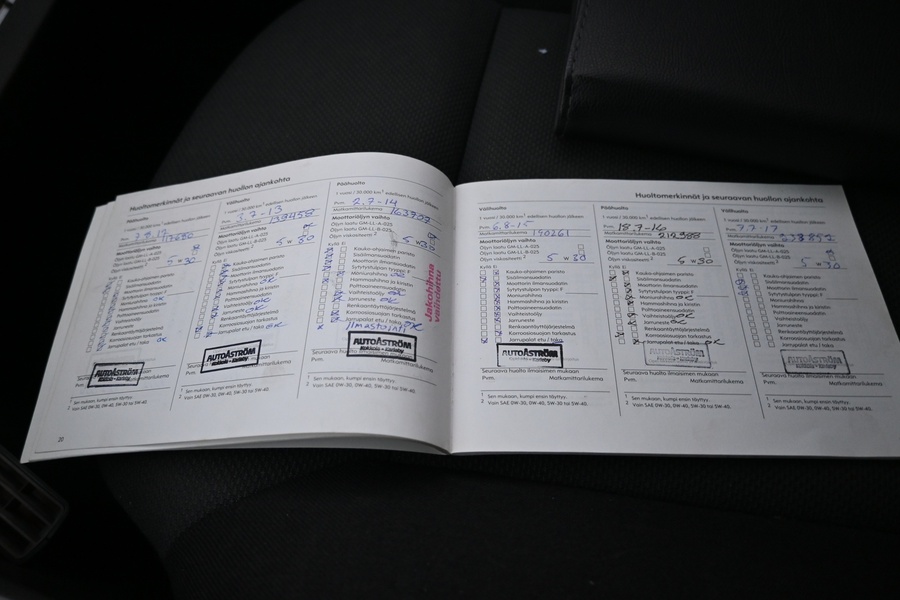 Huoltomerkinnät ja seuraavan huollon ajankohta
Päähuolto
Pvm.
117680
Moottoriöljyn vaihto
Öljyn laatu GM-LL-A-025
Öljyn laatu GM-LL-B-025
Öljyn viskositeetti 2
5 w 30
Kyllä Ei
ok
AUTOÅSTRÖM
1 Sen mukaan, kumpi ensin täyttyy.
2 Vain SAE 0W-30, 0W-40, 5W-30 tai 5W-40.
20
Välihuolto
1 vuosi / 30.000 km 1 edellisen huollon jälkeen
Pvm. 3.7-13
Matkamittarilukema 139458
Moottoriöljyn vaihto
Öljyn laatu GM-LL-A-025
Öljyn laatu GM-LL-B-025
Öljyn viskositeetti 2
5 w 30
Kyllä Ei
Kauko-ohjaimen paristo
Sisäilmansuodatin
Moottorin ilmansuodatin
Sytytystulpan tyyppi: F
Moniurahihna ok
Hammashihna ja kiristin
Polttoaineensuodatin ok
Vaihteistoöljy ok
Jarruneste ok
Renkaantäyttöjärjestelmä
Korroosiosuojan tarkastus
Jarrupalat etu / taka ok
AUTOÅSTRÖM
Seuraava huolto ilmaisimen mukaan
Pvm. Matkamittarilukema
1 Sen mukaan, kumpi ensin täyttyy.
2 Vain SAE 0W-30, 0W-40, 5W-30 tai 5W-40.
Päähuolto
1 vuosi / 30.000 km 1 edellisen huollon jälkeen
Pvm. 2.7-14
Matkamittarilukema
Moottoriöljyn vaihto
Öljyn laatu GM-LL-A-025
Öljyn laatu GM-LL-B-025
Öljyn viskositeetti 2
5 w 30
Kyllä Ei
Kauko-ohjaimen paristo
Sisäilmansuodatin
Moottorin ilmansuodatin
Sytytystulpan tyyppi: F
Moniurahihna ok
Hammashihna ja kiristin
Polttoaineensuodatin
Vaihteistoöljy ok
Jarruneste ok
Renkaantäyttöjärjestelmä
Korroosiosuojan tarkastus
Jarrupalat etu / taka ok
Ilmastointi
Jakohihna
vaihdettu
AUTOÅSTRÖM
Seuraava huolto ilmaisimen mukaan
Pvm. Matkamittarilukema
1 Sen mukaan, kumpi ensin täyttyy.
2 Vain SAE 0W-30, 0W-40, 5W-30 tai 5W-40.
Huoltomerkinnät ja seuraavan huollon ajankohta
Välihuolto
1 vuosi / 30.000 km 1 edellisen huollon jälkeen
Pvm. 6.8-15
Matkamittarilukema 190261
Moottoriöljyn vaihto
Öljyn laatu GM-LL-A-025
Öljyn laatu GM-LL-B-025
Öljyn viskositeetti 2
5 w 30
Kyllä Ei
Kauko-ohjaimen paristo
Sisäilmansuodatin
Moottorin ilmansuodatin
Sytytystulpan tyyppi: F
Moniurahihna
Hammashihna ja kiristin
Polttoaineensuodatin
Vaihteistoöljy
Jarruneste
Renkaantäyttöjärjestelmä
Korroosiosuojan tarkastus
Jarrupalat etu / taka
AUTOÅSTRÖM
Seuraava huolto ilmaisimen mukaan
Pvm. Matkamittarilukema
1 Sen mukaan, kumpi ensin täyttyy.
2 Vain SAE 0W-30, 0W-40, 5W-30 tai 5W-40.
Päähuolto
1 vuosi / 30.000 km 1 edellisen huollon jälkeen
Pvm. 18.7-16
Matkamittarilukema
Moottoriöljyn vaihto
Öljyn laatu GM-LL-A-025
Öljyn laatu GM-LL-B-025
Öljyn viskositeetti 2
5 w 30
Kyllä Ei
Kauko-ohjaimen paristo
Sisäilmansuodatin
Moottorin ilmansuodatin
Sytytystulpan tyyppi: F
Moniurahihna ok
Hammashihna ja kiristin
Polttoaineensuodatin
Vaihteistoöljy ok
Jarruneste ok
Renkaantäyttöjärjestelmä
Korroosiosuojan tarkastus
Jarrupalat etu / taka ok
Seuraava huolto ilmaisimen mukaan
Pvm. Matkamittarilukema
1 Sen mukaan, kumpi ensin täyttyy.
2 Vain SAE 0W-30, 0W-40, 5W-30 tai 5W-40.
Välihuolto
1 vuosi / 30.000 km 1 edellisen huollon jälkeen
Pvm. 7.7-17
Matkamittarilukema
Moottoriöljyn vaihto
Öljyn laatu GM-LL-A-025
Öljyn laatu GM-LL-B-025
Öljyn viskositeetti 2
5 w 30
Kyllä Ei
Kauko-ohjaimen paristo
Sisäilmansuodatin
Moottorin ilmansuodatin
Sytytystulpan tyyppi: F
Moniurahihna
Hammashihna ja kiristin
Polttoaineensuodatin
Vaihteistoöljy
Jarruneste
Renkaantäyttöjärjestelmä
Korroosiosuojan tarkastus
Jarrupalat etu / taka
AUTOÅSTRÖM
Seuraava huolto ilmaisimen mukaan
Pvm. Matkamittarilukema
1 Sen mukaan, kumpi ensin täyttyy.
2 Vain SAE 0W-30, 0W-40, 5W-30 tai 5W-40.